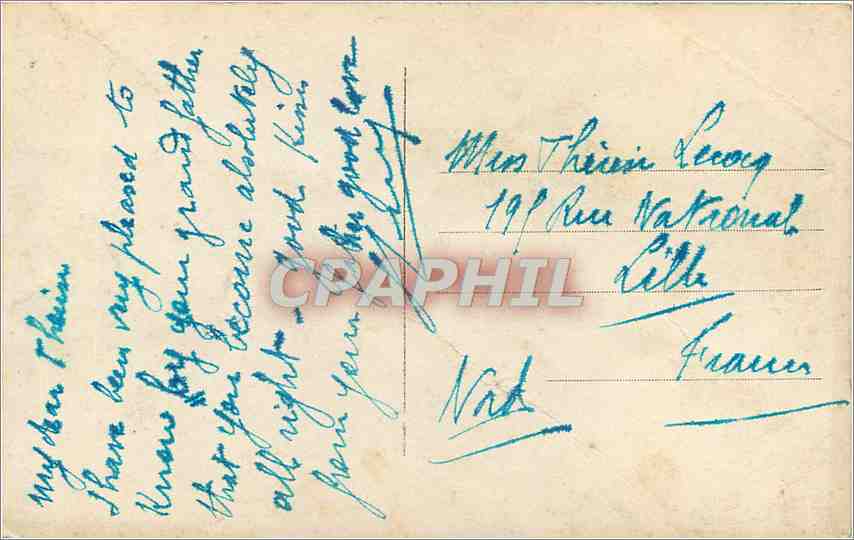 My dear Thérèse
I have been very pleased to
know by your grand father
that you become absolutely
all right - Good Kiss
from your good
Miss Thérèse Lecocq
195 Rue National
Lille
France
Nord
CPAPHIL